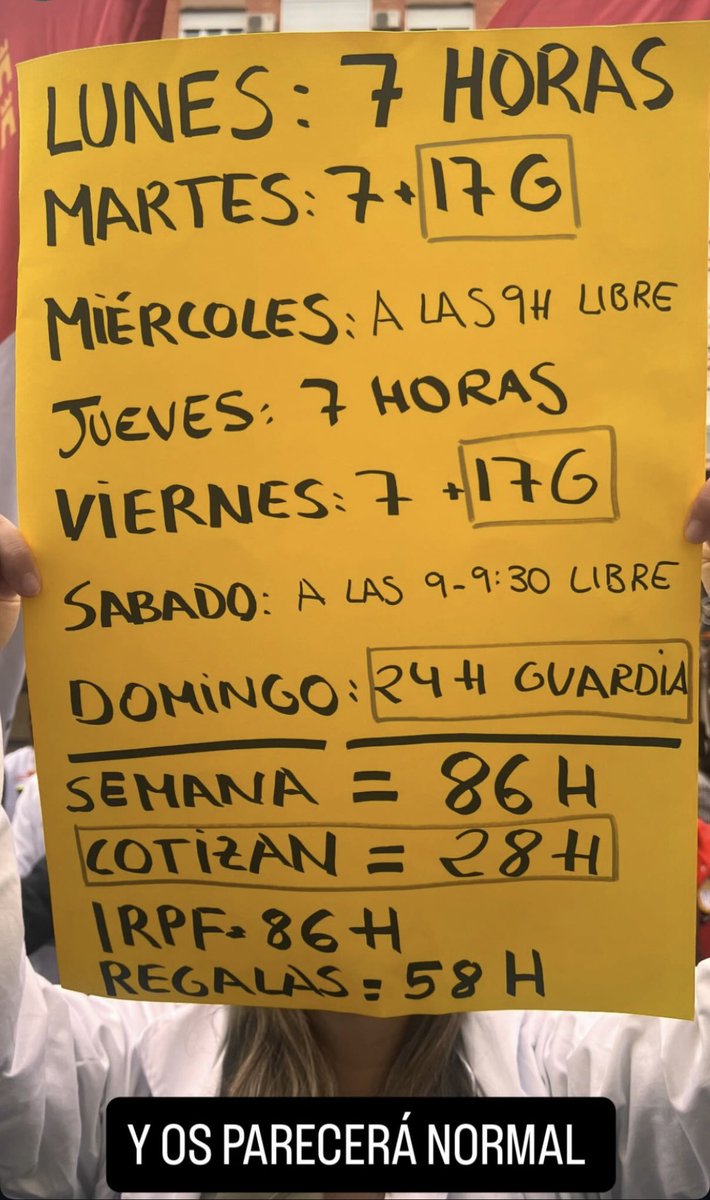 LUNES: 7 HORAS
MARTES: 7+17G
MIÉRCOLES: A LAS 9H LIBRE
JUEVES: 7 HORAS
VIERNES: 7 +17G
SABADO: A LAS 9-9:30 LIBRE
DOMINGO: 24H GUARDIA
SEMANA = 86H
COTIZAN = 28H
IRPF = 86H
REGALAS = 58H
Y OS PARECERÁ NORMAL